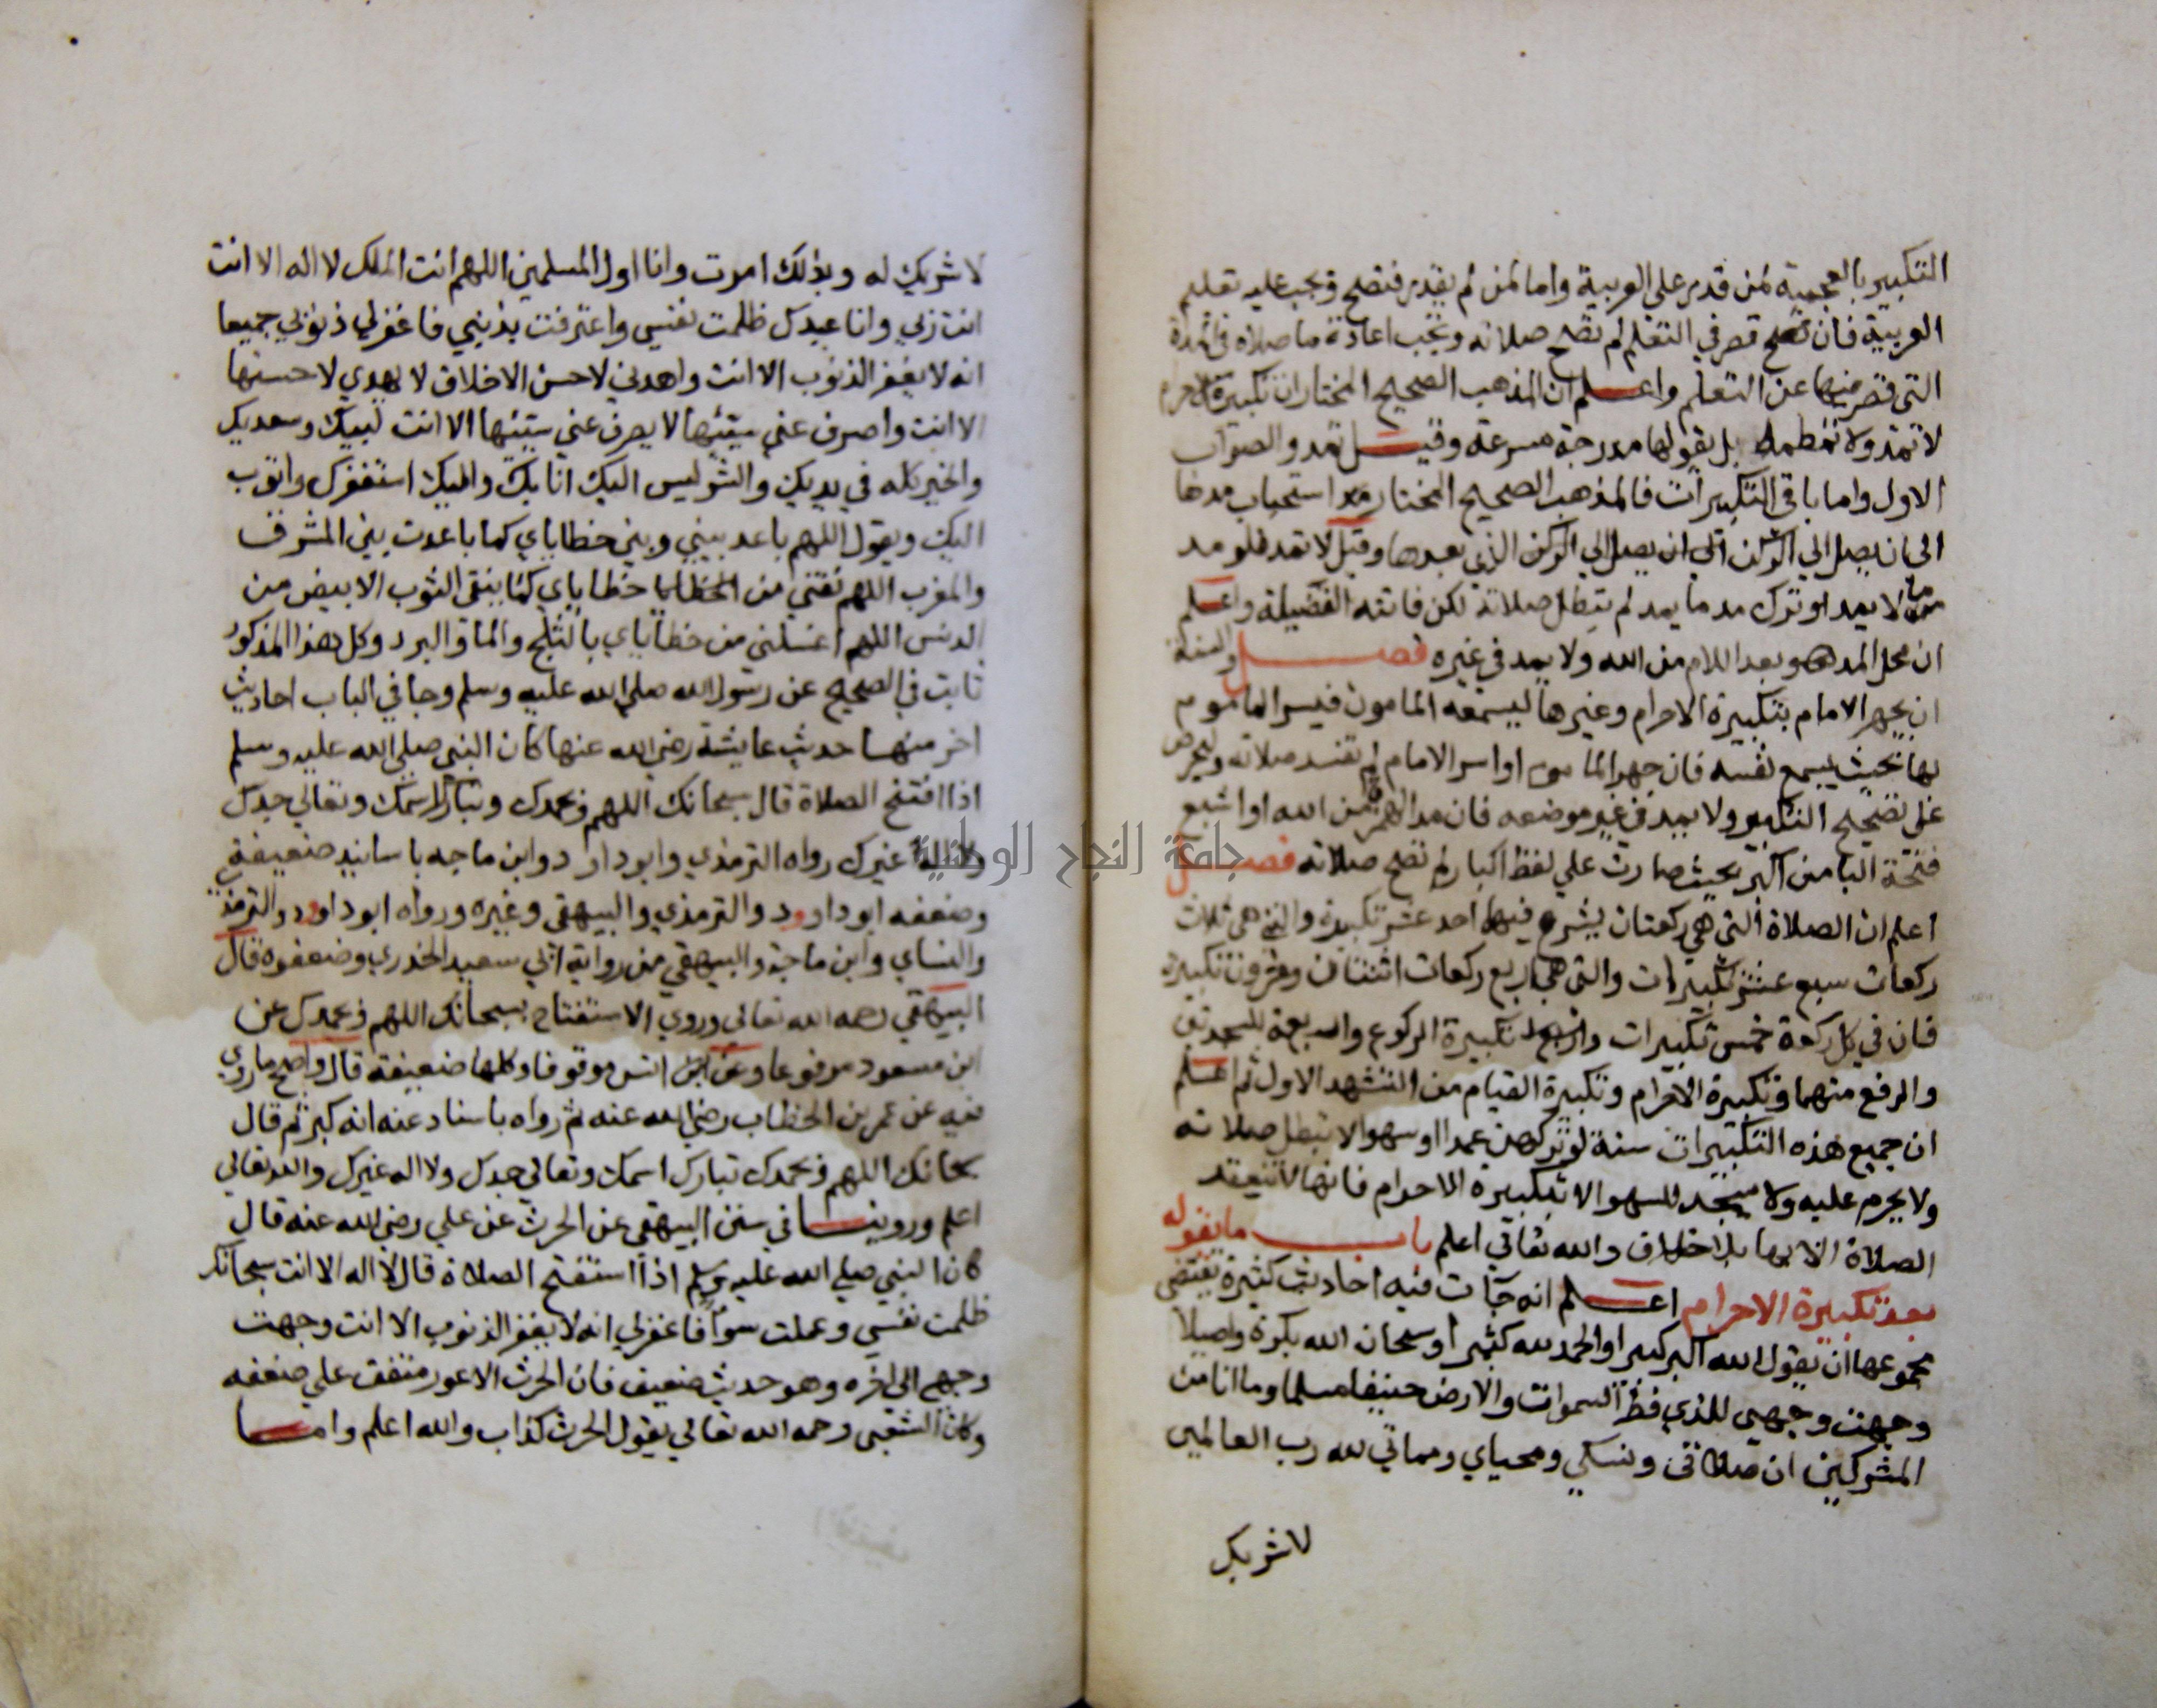 التكبير بالعجمية لمن قدر على العربية واما لمن لم يقدر فتصح ويجب عليه تعلم
العربية فان قصر في التعلم لم تصح صلاته ويجب اعادة ما صلاه في المدة
التي قصر فيها عن التعلم واعلم ان المذهب الصحيح المختار ان تكبيرة الاحرام
لا تمد ولا تمطط بل يقولها مدرجة مسرعة وقيل تمد والصواب
الاول واما باقي التكبيرات فالمذهب الصحيح المختار استحباب مدها
الى ان يصل الي الركن الى ان يصل الي الركن الذي بعدها وقيل لا تمد فلو مد
ما لا يمد او ترك مد ما يمد لم تبطل صلاته لكن فاتته الفضيلة واعلم
ان محل المد هو بعد اللام من الله ولا يمد في غيره فصل والسنة
ان يجهر الامام بتكبيرة الاحرام وغيرها ليسمعه المامون فيسر الماموم
بها بحيث يسمع نفسه فان جهر الماموم او اسر الامام لم تفسد صلاته وليحرص
علي تصحيح التكبير ولا يمد في غير موضعه فان مد الهمزة من الله او اشبع
فتحة البا من اكبر بحيث صارت علي لفظ اكبار لم تصح صلاته فصل
اعلم ان الصلاة التي هي ركعتان يشرع فيها احد عشر تكبيرة والتي هي ثلاث
ركعات سبع عشر تكبيرات والتي هي اربع ركعات اثنتان وعشرون تكبيرة
فان في كل ركعة خمس تكبيرات تكبيرة الركوع واربعة للسجدتين
والرفع منهما وتكبيرة الاحرام وتكبيرة القيام من التشهد الاول ثم اعلم
ان جميع هذه التكبيرات سنة لو تركهن عمدا او سهوا لا تبطل صلاته
ولا يحرم عليه ولا يسجد للسهو الا تكبيرة الاحرام فانها لا تنعقد
الصلاة الا بها بلا خلاف والله تعالي اعلم باب ما يقوله
بعد تكبيرة الاحرام اعلم انه جآت فيه احاديث كثيرة يقتضي
مجموعها ان يقول الله اكبر كبيرا والحمد لله كثيرا وسبحان الله بكرة واصيلا
وجهت وجهي للذي فطر السموات والارض حنيفا مسلما وما انا من
المشركين ان صلاتي ونسكي ومحياي ومماتي لله رب العالمين
لا شريك
لا شريك له وبذلك امرت وانا اول المسلمين اللهم انت الملك لا اله الا انت
انت ربي وانا عبدك ظلمت نفسي واعترفت بذنبي فاغفر لي ذنوبي جميعا
انه لا يغفر الذنوب الا انت واهدني لاحسن الاخلاق لا يهدي لاحسنها
الا انت واصرف عني سيئها لا يصرف عني سيئها الا انت لبيك وسعديك
والخير كله في يديك والشر ليس اليك انا بك واليك استغفرك واتوب
اليك ويقول اللهم باعد بيني وبين خطاياي كما باعدت بين المشرق
والمغرب اللهم نقني من الخطايا خطاياي كما ينقى الثوب الابيض من
الدنس اللهم اغسلني من خطاياي بالثلج والما والبرد وكل هذا المذكور
ثابت في الصحيح عن رسول الله صلي الله عليه وسلم وجا في الباب احاديث
اخر منها حديث عايشة رضي الله عنها كان النبي صلي الله عليه وسلم
اذا افتتح الصلاة قال سبحانك اللهم وبحمدك وتبارك اسمك وتعالي جدك
ولا اله غيرك رواه الترمذي وابو داود وابن ماجه باسانيد ضعيفة
وضعفه ابو داوود والترمذي والبيهقي وغيره ورواه ابو داوود والترمذي
والنساي وابن ماجة والبيهقي من رواية ابي سعيد الخدري وضعفوه قال
البيهقي رحمه الله تعالى وروي الاستفتاح بسبحانك اللهم وبحمدك عن
ابن مسعود مرفوعا وعن انس موقوفا وكلها ضعيفة قال واصح ما روي
فيه عن عمر بن الخطاب رضي الله عنه ثم رواه باسناد عنه انه كبر ثم قال
سبحانك اللهم وبحمدك تبارك اسمك وتعالي جدك ولا اله غيرك والله تعالي
اعلم وروينا في سنن البيهقي عن الحرث عن علي رضي الله عنه قال
كان النبي صلي الله عليه وسلم اذا استفتح الصلاة قال لا اله الا انت سبحانك
ظلمت نفسي وعملت سوأ فاغفر لي انه لا يغفر الذنوب الا انت وجهت
وجهي الي اخره وهو حديث ضعيف فان الحرث الاعور متفق علي ضعفه
وكان الشعبي رحمه الله تعالي يقول الحرث كذاب والله اعلم واما
جامعة النجاح الوطنية